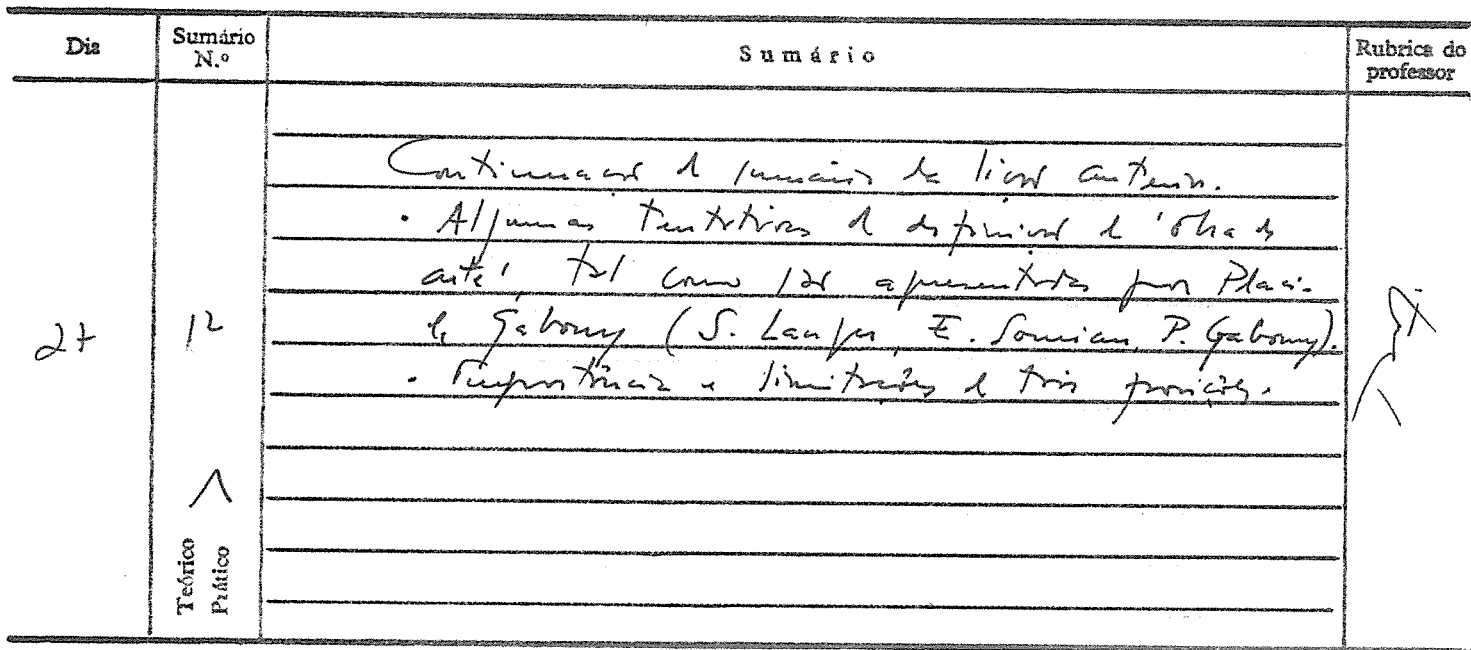 Dia
Sumário N.º
Sumário
Rubrica do professor
27
12
Continuação do sumário da lição anterior.
. Algumas tentativas de definição de 'obra de
arte', tal como são apresentadas por Placi-
de Gaboury (S. Langer, E. Souriau, P. Gaboury).
. Importância e limitações de três posições.
Teórico
Prático